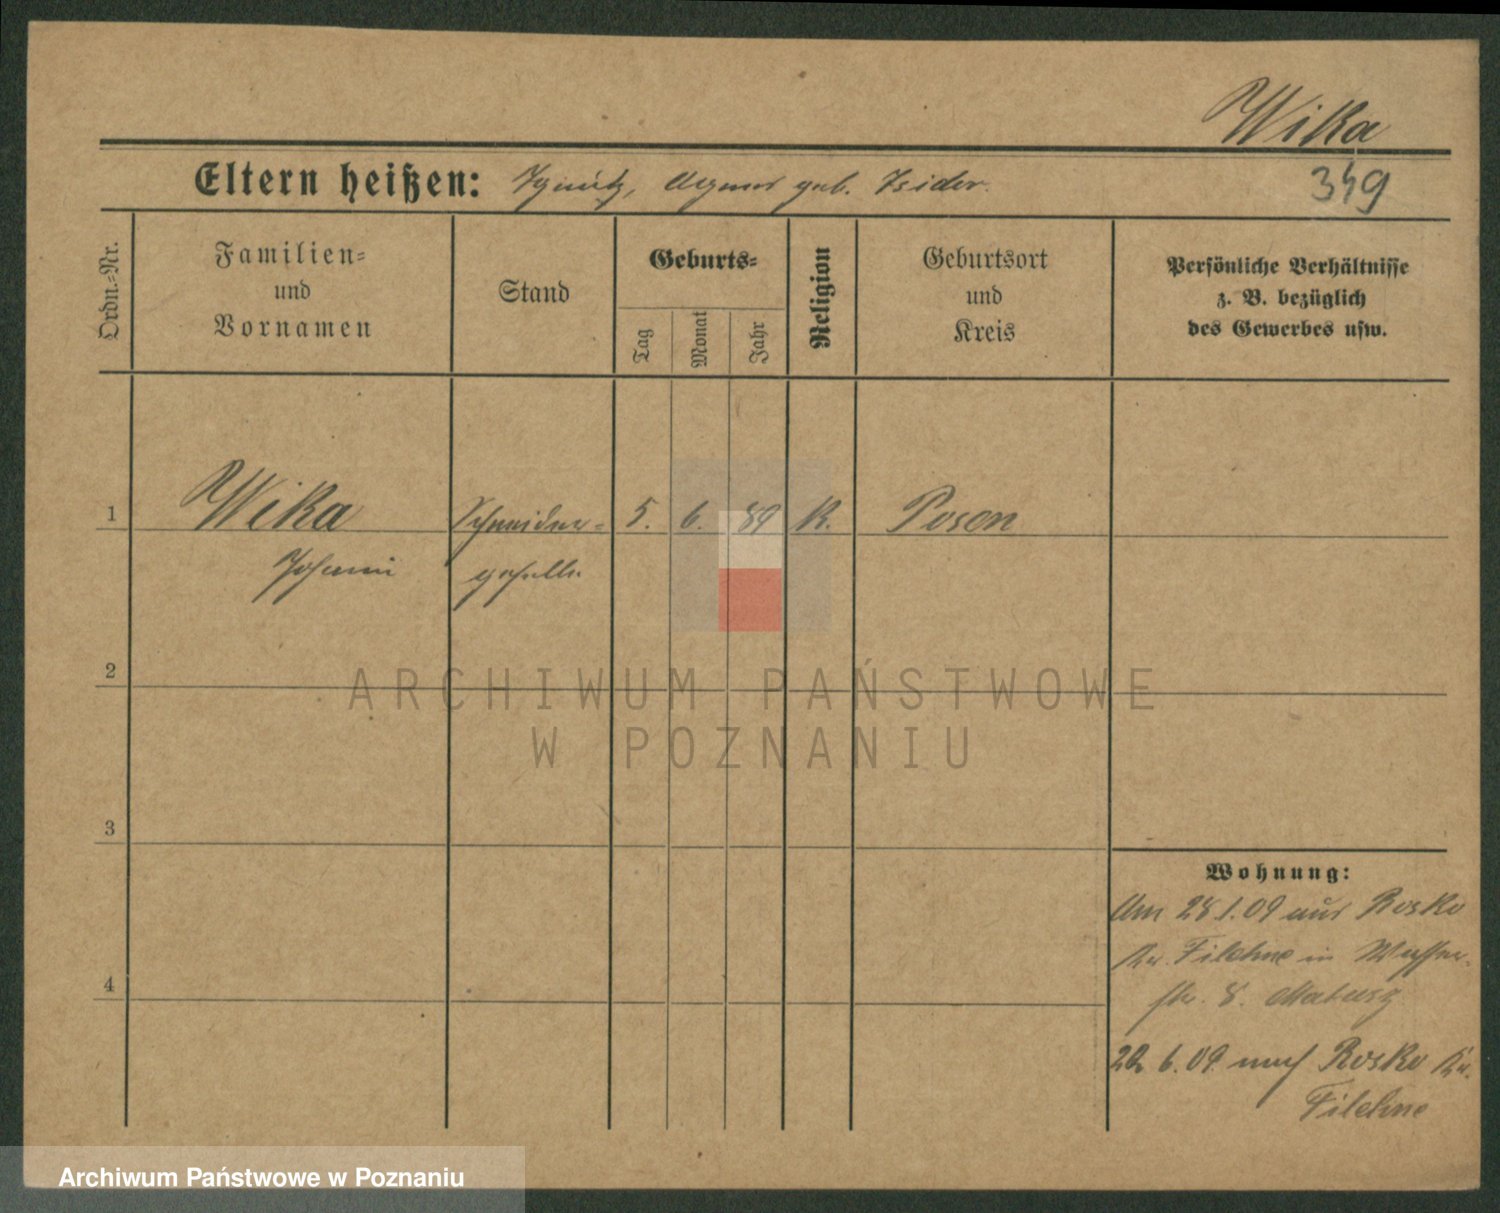 Wika
Eltern heißen: Ignatz, Agnes geb. Isider.
349
Ordn.=Nr.
Familien=
und
Vornamen
Stand
Geburts=
Tag
Monat
Jahr
Religion
Geburtsort
und
Kreis
Persönliche Verhältnisse
z. B. bezüglich
des Gewerbes usw.
1
Wika
Schneider=
5.
6.
89
K.
Posen
Johann
geselle
2
ARCHIWUM PAŃSTWOWE
W POZNANIU
3
Wohnung:
Am 28.1.09 aus Rosko
Kr. Filehne in
4
str. 8. Matusz
22 6.09. nach Rosko Kr.
Filehne
Archiwum Państwowe w Poznaniu